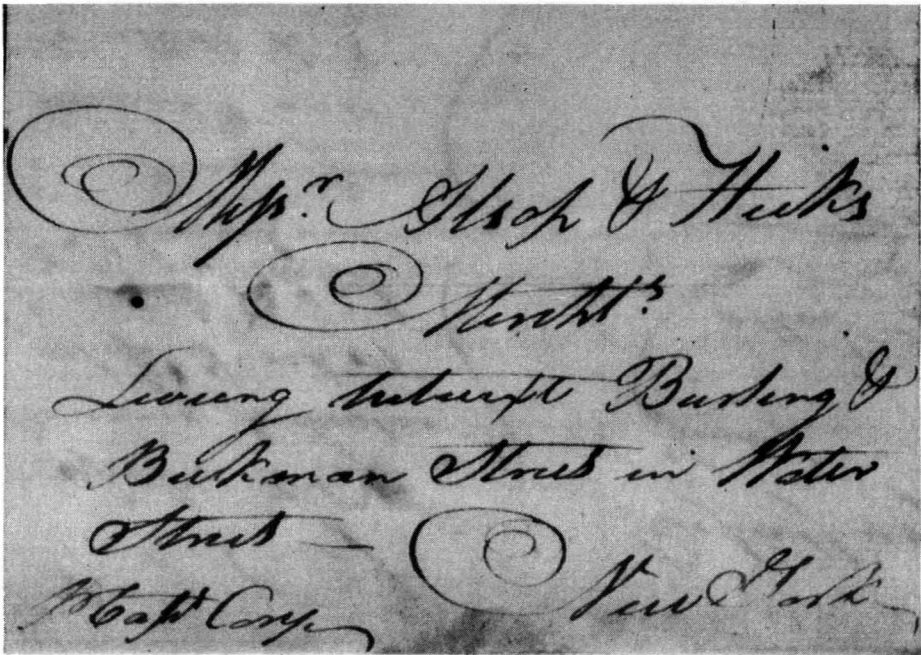 Messrs. Alsop & Hicks
Mercht.s
Liveing betwixt Burling &
Beekman Street in Water
Street —
New York
Pr Capt. Corp